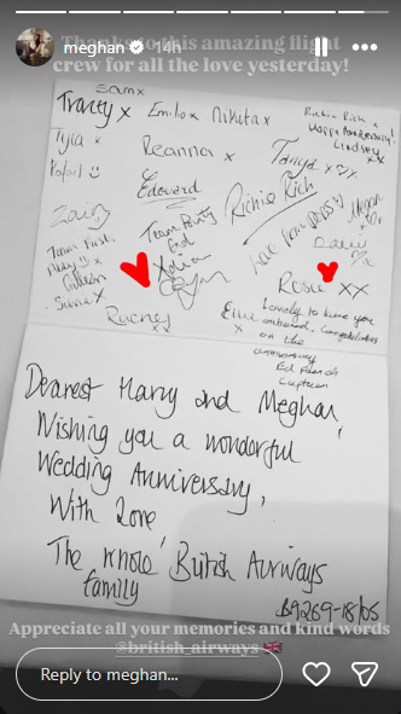 meghan 14h
Thanks to this amazing flight
crew for all the love yesterday!
Sam x
Tracey x Emilo x Nikita x
Tyla x
Reanna x
Tanya x
Rafael
Edouard
Richie Rich
Richie Rich x
Happy Anniversary!
Lindsey
xx
Megan
Zainy
Team Purity
End
Team First,
Colleen
Silvia x
love from
Rosie xx
Rodney
xx
Ellie
x
Lovely to have you
onboard. Congratulations
on the
anniversary
Ed French
Captain
Dearest Harry and Meghan,
Wishing you a wonderful
Wedding Anniversary,
With love,
The whole British Airways
family
BA269-18/05
Appreciate all your memories and kind words
@british_airways 🇬🇧
Reply to meghan...